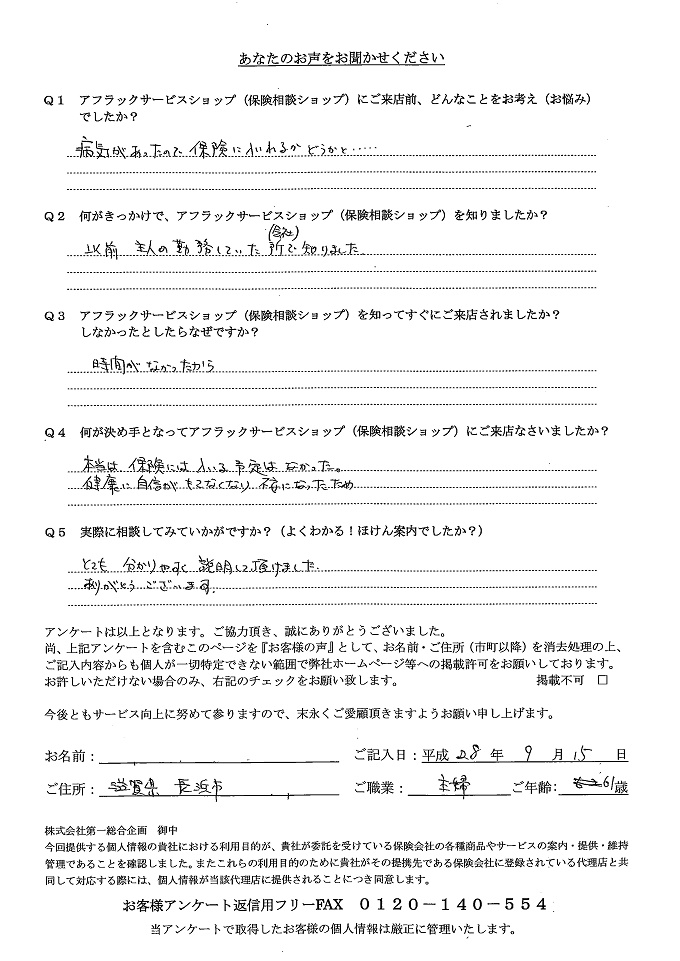 あなたのお声をお聞かせください
Q1 アフラックサービスショップ（保険相談ショップ）にご来店前、どんなことをお考え（お悩み）
でしたか？
病気があったので 保険に入れるか どうかと……
Q2 何がきっかけで、アフラックサービスショップ（保険相談ショップ）を知りましたか？
(会社)
以前 主人の勤務していた 所で知りました
Q3 アフラックサービスショップ（保険相談ショップ）を知ってすぐにご来店されましたか？
しなかったとしたらなぜですか？
時間が なかったから
Q4 何が決め手となってアフラックサービスショップ（保険相談ショップ）にご来店なさいましたか？
本当は 保険には 入いる 予定は なかった。
健康に 自信が もてなくなり 不安になったため
Q5 実際に相談してみていかがですか？（よくわかる！ほけん案内でしたか？）
とても 分かりやすく 説明して 頂けました.
ありがとう ございます.
アンケートは以上となります。ご協力頂き、誠にありがとうございました。
尚、上記アンケートを含むこのページを『お客様の声』として、お名前・ご住所（市町以降）を消去処理の上、
ご記入内容からも個人が一切特定できない範囲で弊社ホームページ等への掲載許可をお願いしております。
お許しいただけない場合のみ、右記のチェックをお願い致します。 掲載不可 □
今後ともサービス向上に努めて参りますので、末永くご愛顧頂きますようお願い申し上げます。
お名前： ご記入日：平成 28 年 9 月 15 日
ご住所： 滋賀県 長浜市 ご職業： 主婦 ご年齢： 61歳
株式会社第一総合企画 御中
今回提供する個人情報の貴社における利用目的が、貴社が委託を受けている保険会社の各種商品やサービスの案内・提供・維持
管理であることを確認しました。またこれらの利用目的のために貴社がその提携先である保険会社に登録されている代理店と共
同して対応する際には、個人情報が当該代理店に提供されることにつき同意します。
お客様アンケート返信用フリーFAX 0120－140－554
当アンケートで取得したお客様の個人情報は厳正に管理いたします。